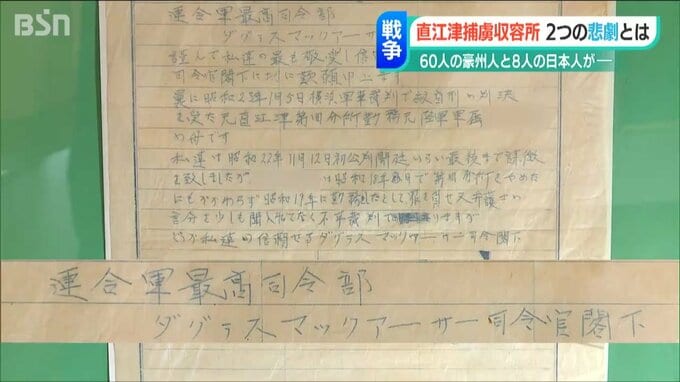 BSN
戦争
直江津捕虜収容所 2つの悲劇とは
60人の豪州人と8人の日本人が―
連合軍最高司令部
ダグラスマックアーサー
謹んで私達の最も敬愛し信
司令官閣下に 歎願申上ます
昭和23年1月5日横浜軍事裁判で絞首刑の判決
を受た元直江津第四分所勤務元陸軍軍属
の母です
私達は昭和22年11月12日初公判開廷いらい最後まで
を致しましたが は昭和18年 日で第四分所をやめた
にもかかわらず昭和19年に勤務したとして 弁護士の
言分を少しも聞入れてなく不平裁判で ますが
どうか私達の信頼せるダグラスマックアーサー司令閣下
連合軍最高司令部
ダグラスマックアーサー司令官閣下